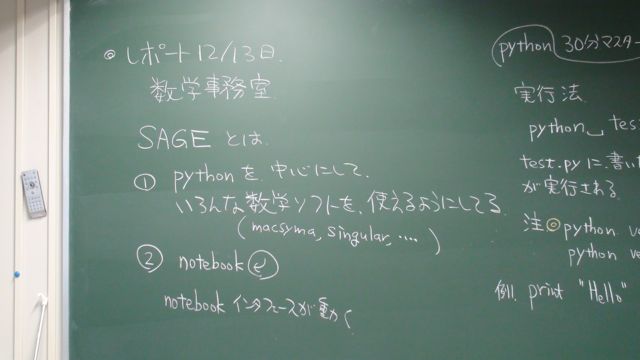 ◎ レポート 12/13日.
数学事務室.
SAGE とは.
① pythonを.中心にして.
いろんな数学ソフトを.使えるようにしてる
(macsyma, singular, ....)
② notebook
notebook インタフェースが動く
python 30分マスター
実行法.
python␣ tes
test.pyに.書い
が実行される.
注◎ python ve
python ve
例. print "Hello"